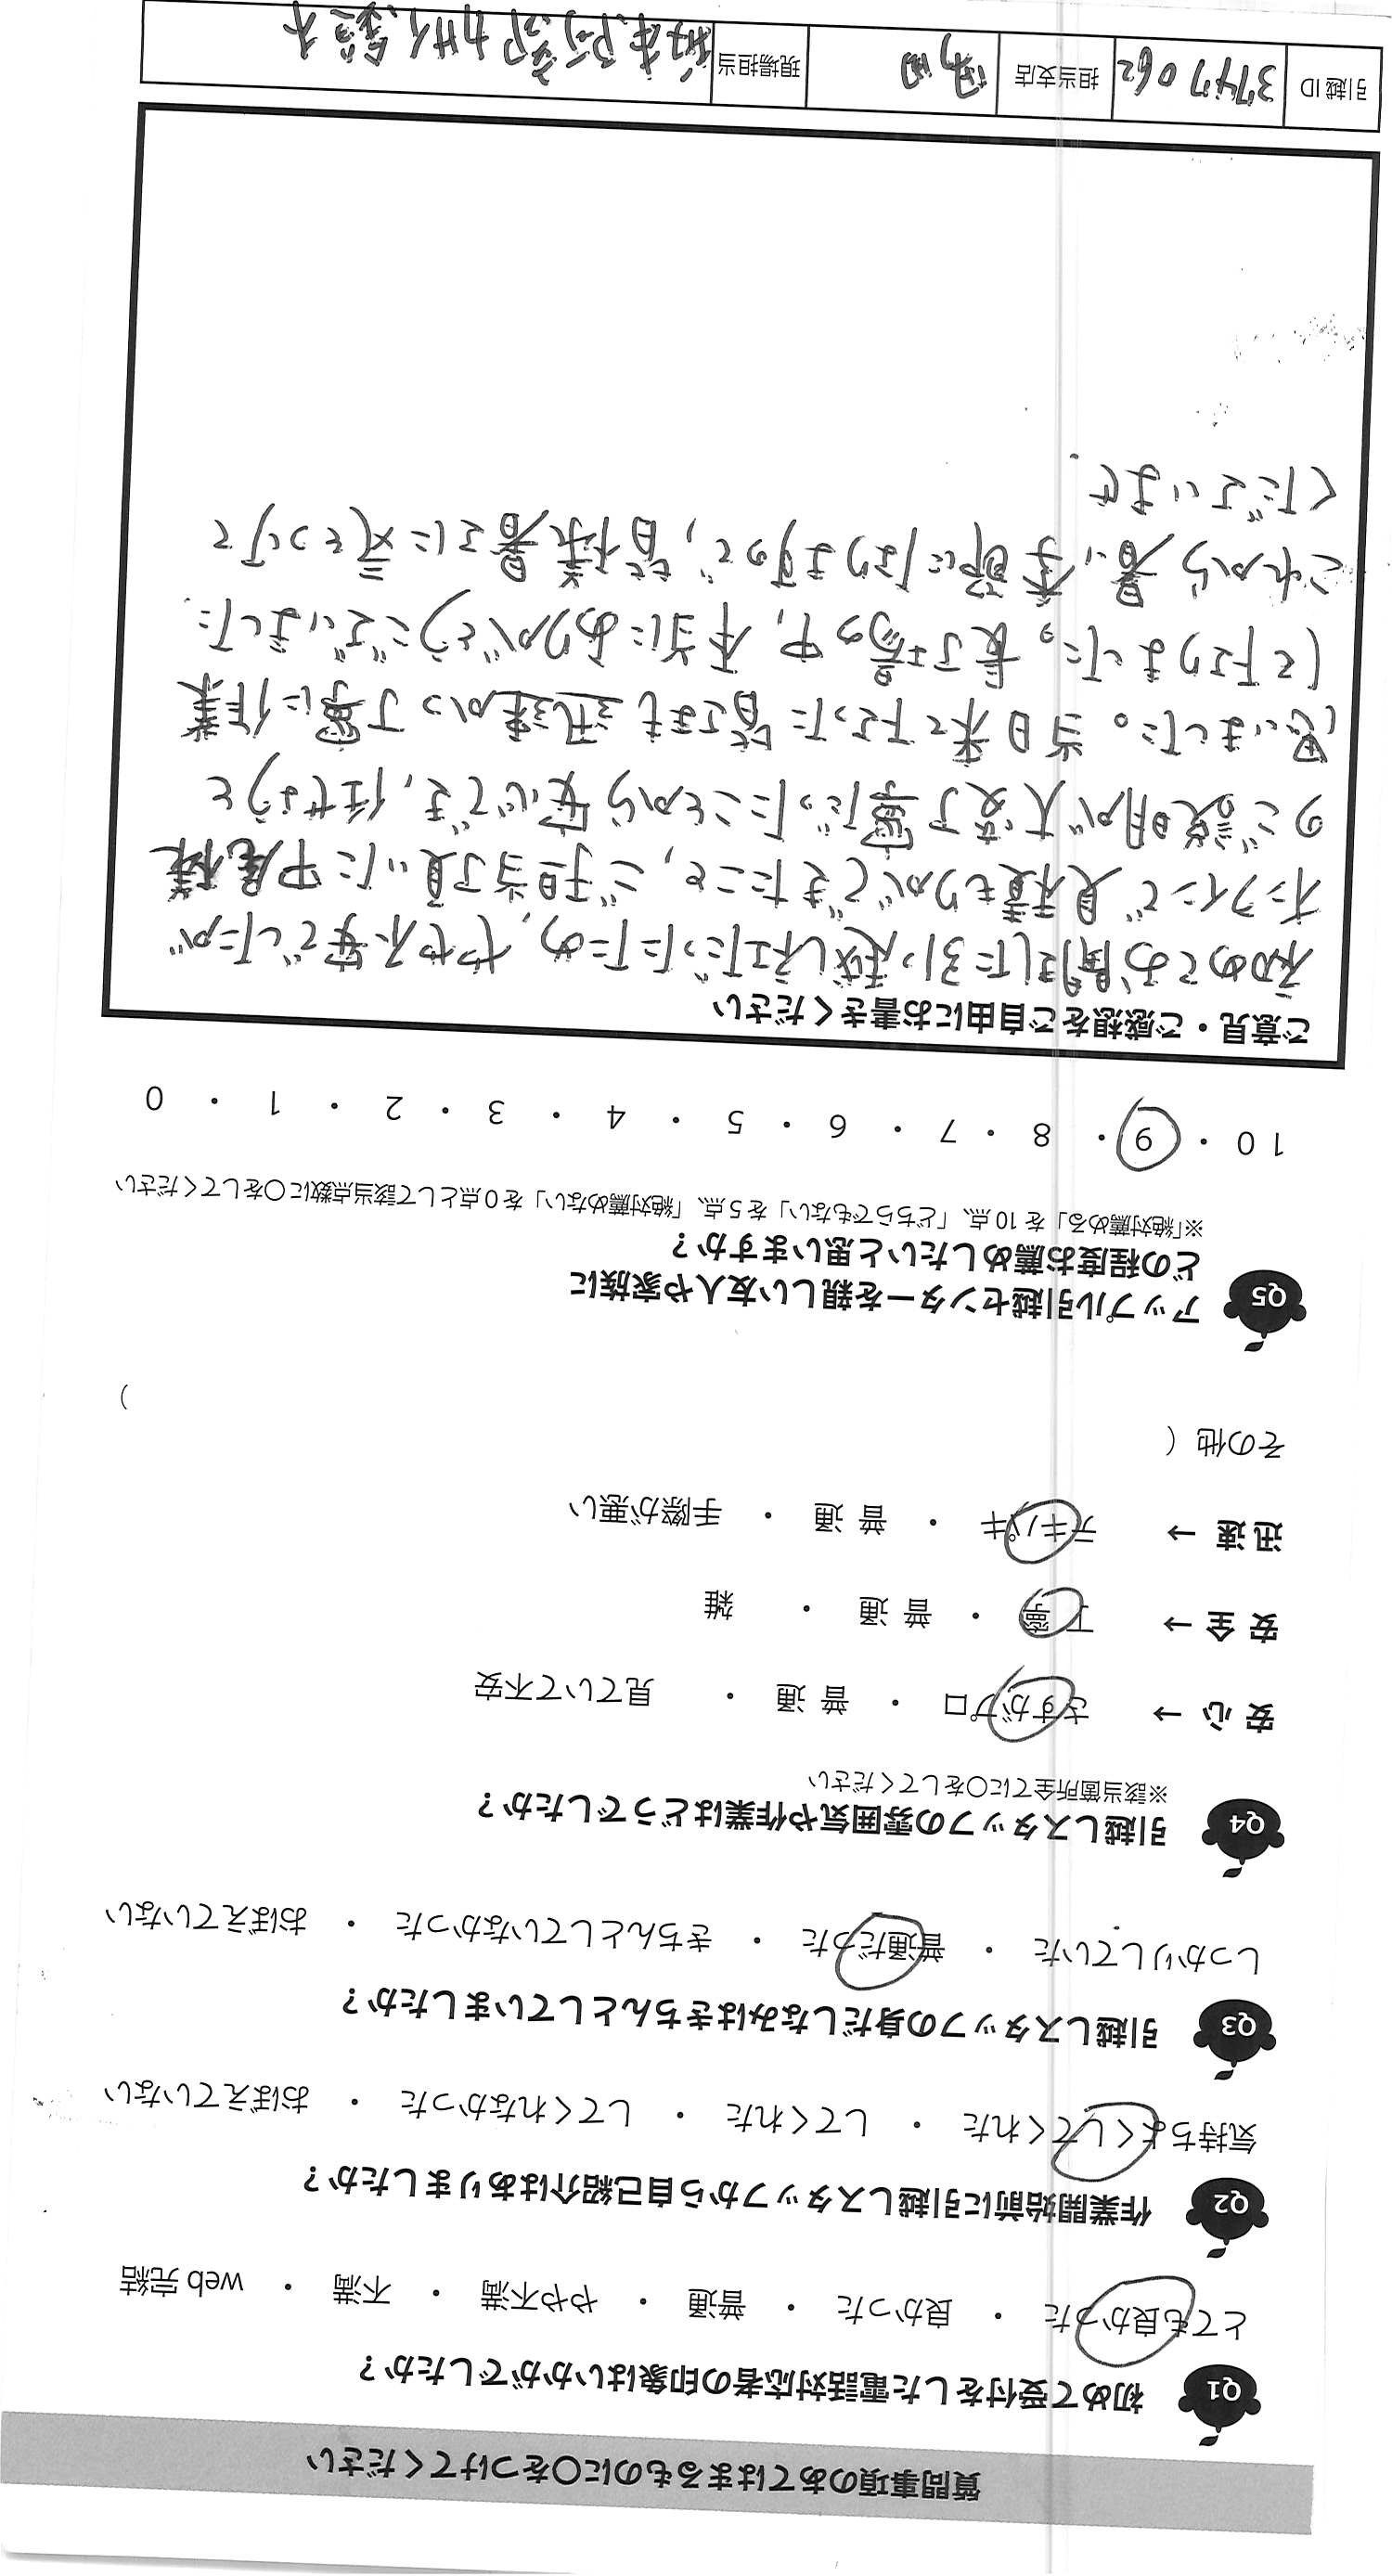 質問事項のあてはまるものに○をつけてください
Q1 初めて受付をした電話対応者の印象はいかがでしたか？
とても良かった ・ 良かった ・ 普通 ・ やや不満 ・ 不満 ・ web 完結
Q2 作業開始前に引越しスタッフから自己紹介はありましたか？
気持ちよくしてくれた ・ してくれた ・ してくれなかった ・ おぼえていない
Q3 引越しスタッフの身だしなみはきちんとしていましたか？
しっかりしていた ・ 普通だった ・ きちんとしていなかった ・ おぼえていない
Q4 引越しスタッフの雰囲気や作業はどうでしたか？
※該当箇所全てに○をしてください
安 心 → さすがプロ ・ 普 通 ・ 見ていて不安
安 全 → 丁 寧 ・ 普 通 ・ 雑
迅 速 → テキパキ ・ 普 通 ・ 手際が悪い
その他（ ）
Q5 アップル引越センターを親しい友人や家族に
どの程度お薦めしたいと思いますか？
※「絶対薦める」を 10 点、「どちらでもない」を 5 点、「絶対薦めない」を 0 点として該当点数に○をしてください
10 ・ 9 ・ 8 ・ 7 ・ 6 ・ 5 ・ 4 ・ 3 ・ 2 ・ 1 ・ 0
ご意見・ご感想をご自由にお書きください
初めてお聞した引っ越し社だったため、やや不安でしたが
オンラインで見積もりができたこと、ご担当頂いた中尾様
のご説明が大変丁寧だったことから安心でき、任せようと
思いました。当日来て下さった皆さまも迅速かつ丁寧に作業
して下さりました。長丁場の中、本当にありがとうございました.
これから暑い季節にはりますので、皆様暑さに気をつけて
くださいませ.
引越 ID 3747062 担当支店 現場担当